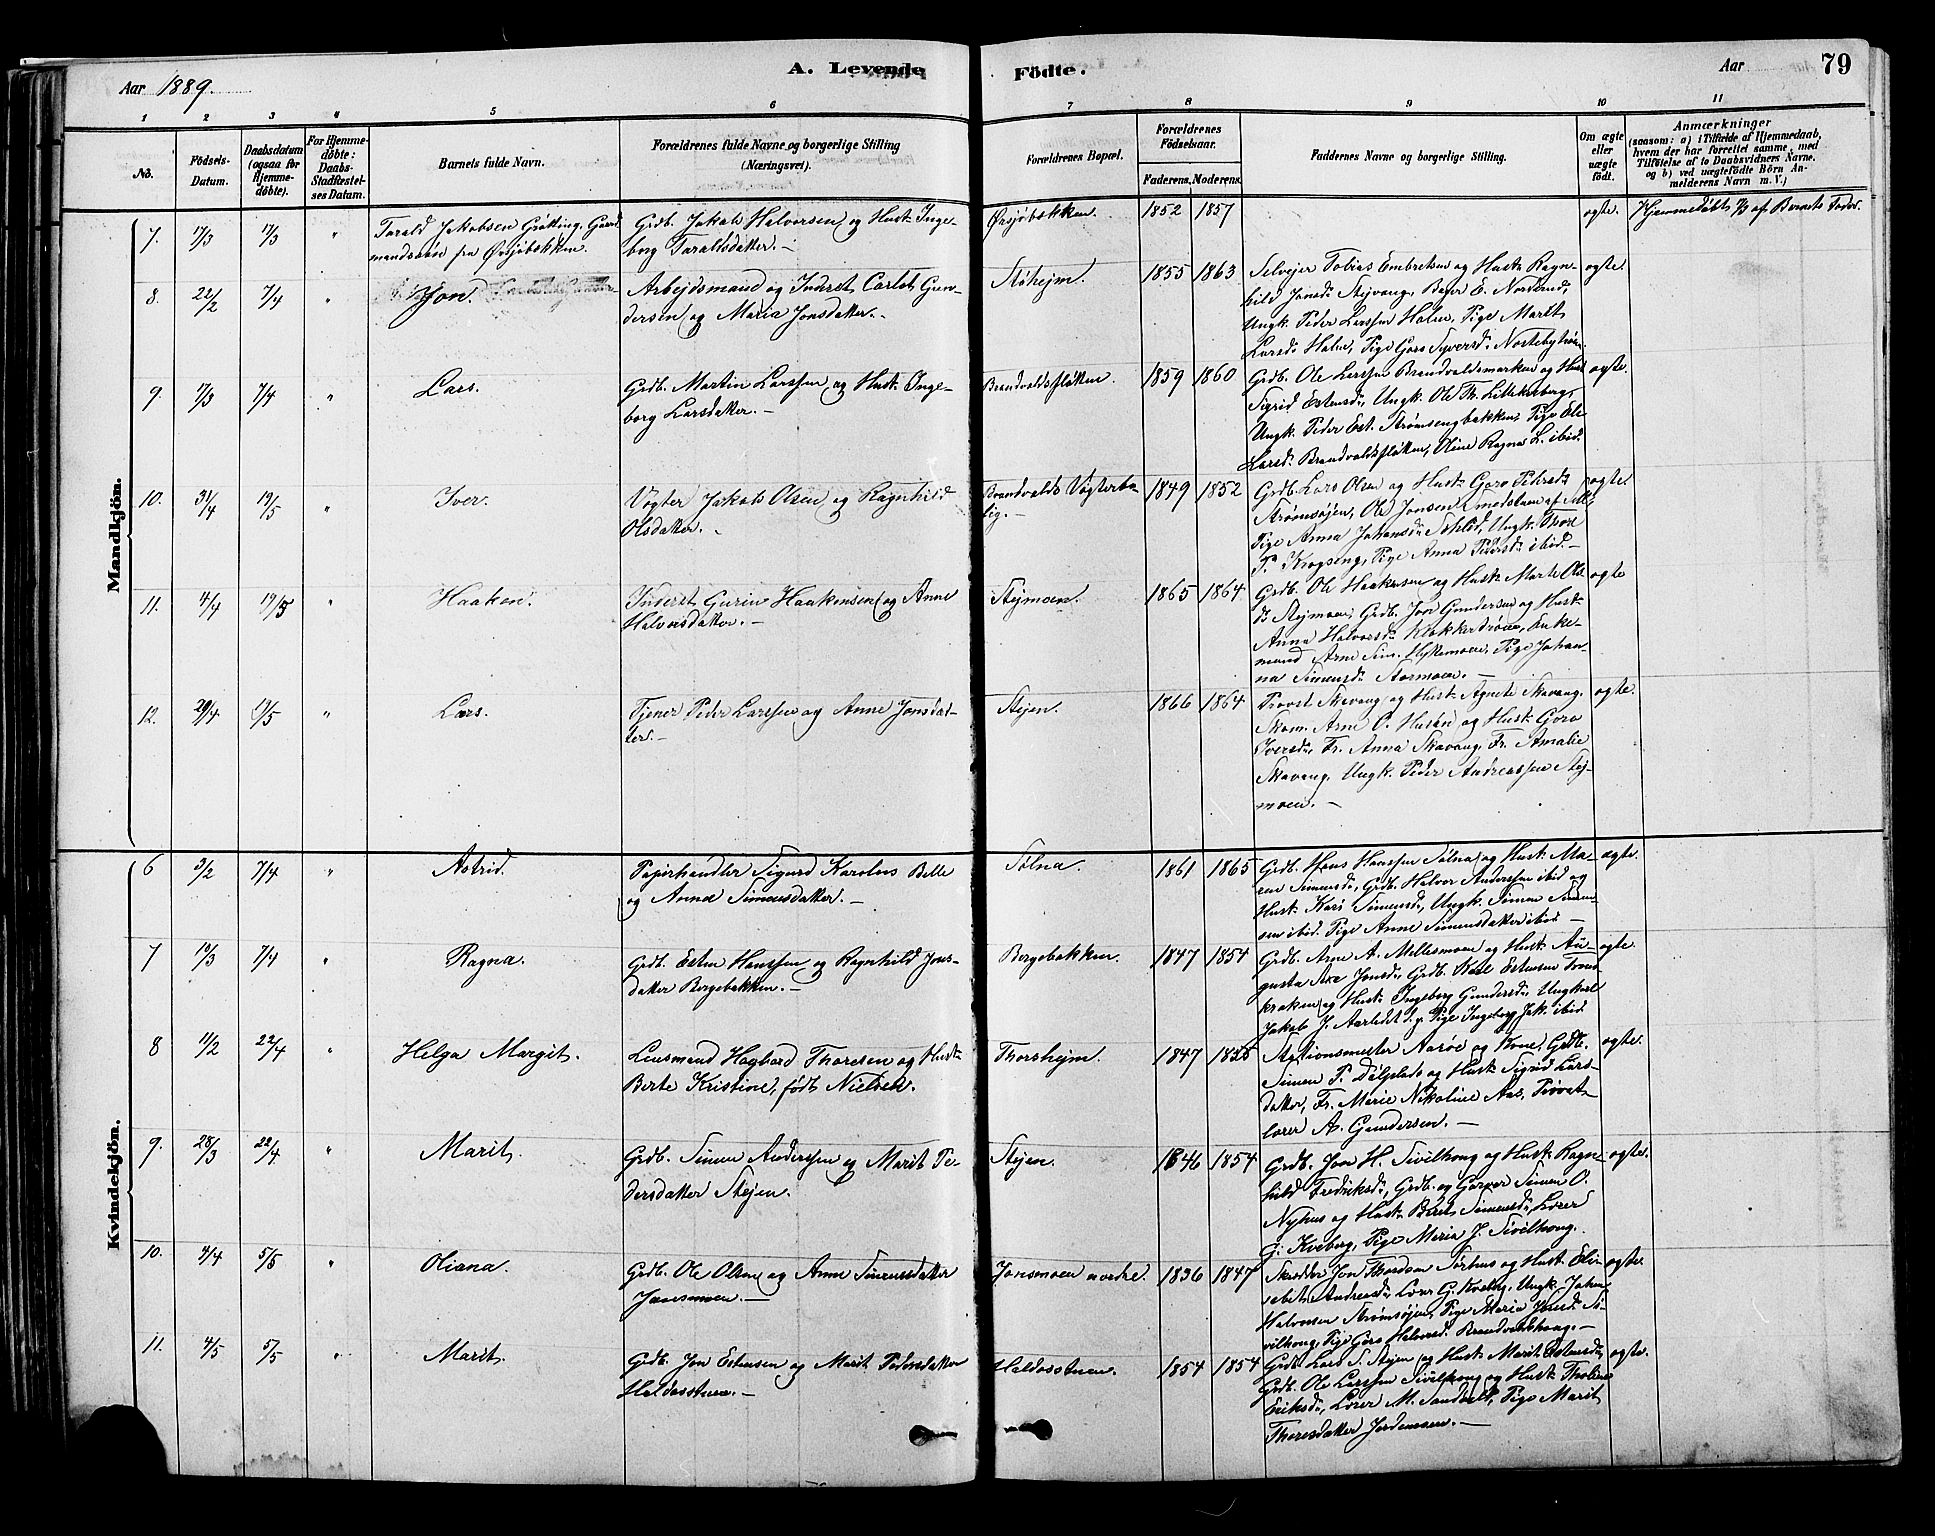 Aar 1889.
A. Levende Födte.
Aar
79
1 2 3 4 5 6 7 8 9 10 11
No.
Födsels-Datum.
Daabsdatum (ogsaa for Hjemme-döbte).
For Hjemme-döbte: Daabs-Stadfæstel-ses Datum.
Barnets fulde Navn.
Forældrenes fulde Navne og borgerlige Stilling (Næringsvei).
Forældrenes Bopæl.
Forældrenes Födselsaar.
Faderens. Moderens.
Faddernes Navne og borgerlige Stilling.
Om ægte eller uægte födt.
Anmærkninger
(saasom: a) i Tilfælde af Hjemmedaab,
hvem der har forrettet samme, med
Tilföielse af to Daabsvidners Navne,
og b) ved uægtefödte Börn An-
melderens Navn m. V.)
Mandkjön.
7. 17/3 17/3 " Tarald Jakobsen Gråtting, Gaard-
mandssøn fra Øvsjøbækken
Grdb. Jakob Halvorsen og Hust. Inge-
borg Taraldsdatter. —
Øvsjøbækken. 1852 1857 ægte. Hjemmedøbt 17/3 af Barnets Fader.
8. 22/2 7/4 " Jon.
Arbejdsmand og Inderst Carlot Gun-
dersen og Maria Jonsdatter. —
Støhejm. 1855 1863
Selvejer Tobias Embretsen og Hust. Ragn-
hild Jonsd. Stejvang, Bager E. Nordlund,
Ungk. Peder Larssen Holm, Pige Marit
Larsd. Holm, Pige Goro Syversd.
ægte.
9. 17/3 7/4 " Lars.
Grdb. Martin Larssen og Hust. Inge-
borg Larsdatter. —
Brandvoldsfløtten. 1859 1860
Grdb. Ole Larssen Brandvoldsmarken og Hust
Sigrid Estensd., Ungk. Ole Th. Littlekeberg,
Ungk. Peder Est. Strømsengbakken, Pige Eli
Larsd. Brandvoldsfløtten, Oline Ragna L. ibid.
ægte.
10. 31/4 19/5 " Iver.
Vogter Jakob Olsen og Ragnhild
Olsdatter. —
Brandvolds Vogterbo-
lig. — 1849 1852
Grdb. Lars Olsen og Hust. Goro Pedersd.
Strømsøjen, Ole Jonsen
Pige Anna Johansd. Ungk. Thore
P. Krogseng, Pige Anna Pedersd. ibid. —
ægte
11. 4/4 19/5 " Haakon.
Inderst Gurin Haakensen og Anne
Halvorsdatter. —
Stejmoen. 1865 1864
Grdb. Ole Haakensen og Hust. Marte Ols
D. Stejmoen, Grdb. Jon Gundersen og Hust.
Anna Halvorsd. Klokkertrøen, Enke-
mand Arne Sim. Hykemoen, Pige Johan-
na Simensd. Stormoen. —
ægte
12. 29/4 19/5 " Lars.
Tjener Peder Larssen og Anne Jonsdat-
ter. —
Stejen. 1866 1864
Provst Skavang og Hust. Agnete Skavang,
Skom. Arne O. Husen og Hust. Goro
Iversd., Fr. Anna Skavang, Fr. Amalie
Skavang, Ungk. Peder Andreassen Stej-
moen. —
ægte.
Kvindekjön.
6 3/2 7/4 " Astrid.
Papirhandler Sigurd Karolus Belle
og Anna Simensdatter. —
Tølna. 1861 1865
Grdb. Hans Hanssen Tølna og Hust. Ma-
ren Simensd., Grdb. Halvor Anderssen ibid og
Hust. Kari Simensd., Ungk. Simen Simen-
sen ibid. Pige Anne Simensdatter ibid. —
ægte.
7 19/3 7/4 " Ragna.
Grdb. Esten Hanssen og Ragnhild Jons-
datter Bergebakken. —
Bergebakken. 1847 1854
Grdb. Arne A. Mellesmoen og Hust. Au-
gusta Jonsd., Grdb. Karl Estensen Trons-
kraken og Hust. Ingeborg Gundersd. Ungkarl
Jakob J. Aasledet og Pige Ingeborg Jak. ibid
ægte.
8 11/2 22/4 " Helga Margit.
Lensmand Hagbard Thoresen og Hust.
Berte Kristine, født Nielsen.
Thorshejm. 1847 1855
Stationsmester Aarøe og Kone, Grdb.
Simen P. Dølplads og Hust. Sigrid Lars-
datter, Fr. Marie Nikoline Aas, Privat-
lærer A. Gundersen. —
ægte.
9. 28/3 22/4 " Marit.
Grdb. Simen Anderssen og Marit Pe-
dersdatter Stejen.
Stejen. 1846 1854
Grdb. Jon H. Sivilhong og Hust. Ragn-
hild Fredriksd., Grdb. og Garver Simen O.
Nyhus og Hust. Beret Simensd., Lærer
G. Kveberg, Pige Maria J. Sivilhong.
ægte.
10. 4/4 5/5 " Oliana.
Grdb. Ole Olsen og Anne Simensdatter
Jonsmoen. —
Jonsmoen nedre. 1836 1847
Skrædder Jon Thordsen Tørhus og Hust. Eli-
sebet Andreasd., Lærer G. Kveberg, Ungk. Johan
Halvorsen Strømsøjen, Pige Maria Jonsd. Si-
vilhong, Pige Goro Halvorsd. Brandvoldshong. —
ægte.
11. 4/5 5/5 " Marit.
Grdb. Jon Estensen og Marit Pedersdatter
Haldosstuen. —
Haldosstuen. 1854 1854
Grdb. Lars S. Stejen og Hust. Marit Estensd.,
Grdb. Ole Larssen Sivilhong og Hust. Tholine
Eriksd., Lærer M. Sandvolt, Pige Marit
Thoresdatter Jordemoen. —
ægte.